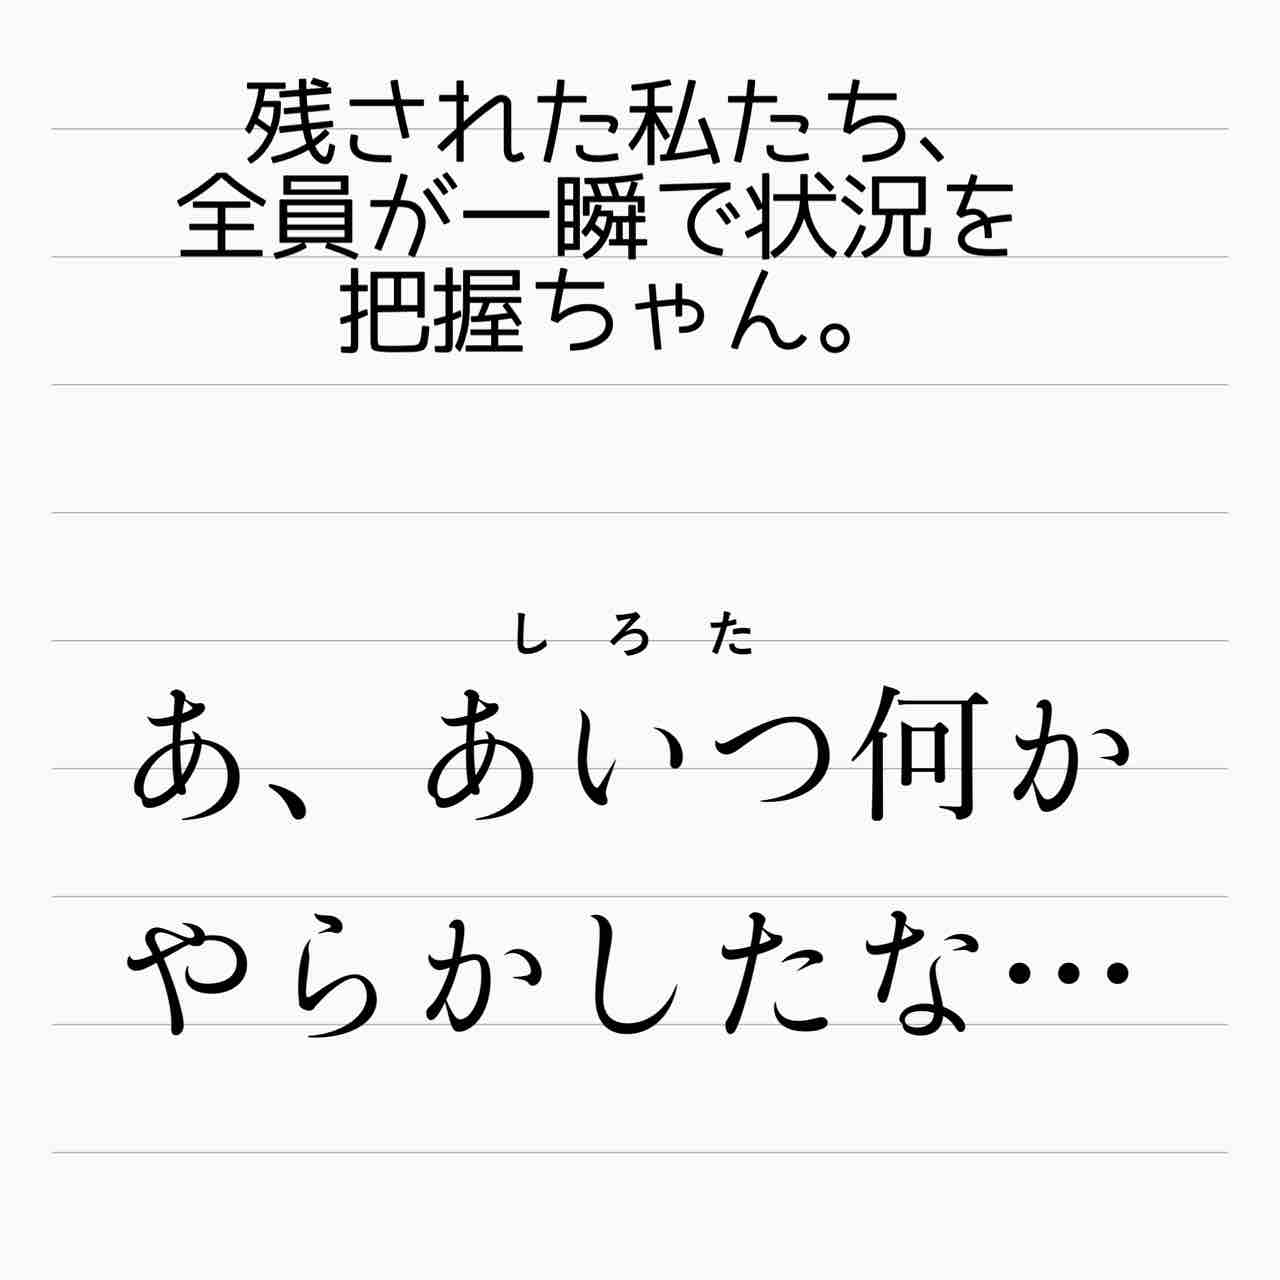 残された私たち、
全員が一瞬で状況を
把握ちゃん。
しろた
あ、あいつ何か
やらかしたな…